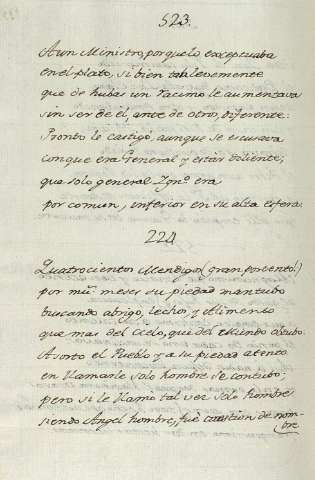 523.
A un Ministro, porque lo exceptuaba
en el plato, si bien tan levemente
que de hubas un racimo le aumentava
sin ser de él, ante de otro, diferente:
Pronto le castigó aunque se escusava
con que era General y estar doliente;
que solo general Ygn.º era
por comun, inferior en su alta esfera.
224
Quatrocientos Mendigos (gran portento!)
por mui meses su piedad mantubo
buscando abrigo, lechos, y Alimento
que mas del Cielo, que del Mundo obtubo.
Asorto el Pueblo y a su piedad atento
en llamarle solo hombre se contubo;
pero si le llamó tal vez solo hombre
siendo Angel hombre, fué cuestion de nom-
bre